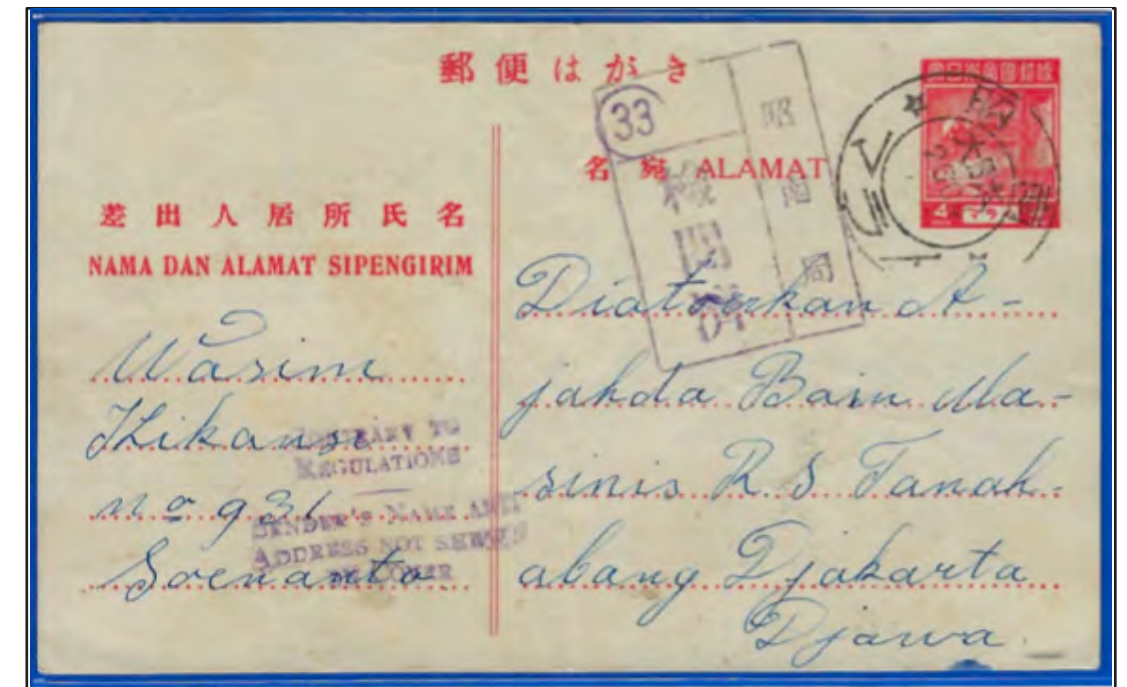 郵便はがき
名宛 ALAMAT
差出人居所氏名
NAMA DAN ALAMAT SIPENGIRIM
33
昭南局
検閲済
Wasim
Kikansi
no 931
Soenanto
CONTRARY TO
REGULATIONS
SENDER'S NAME AND
ADDRESS NOT SHEWN
ON COVER
Diatoerkan A-
jahda Baim Ma-
sinis R. S Tanah-
abang Djakarta
Djawa